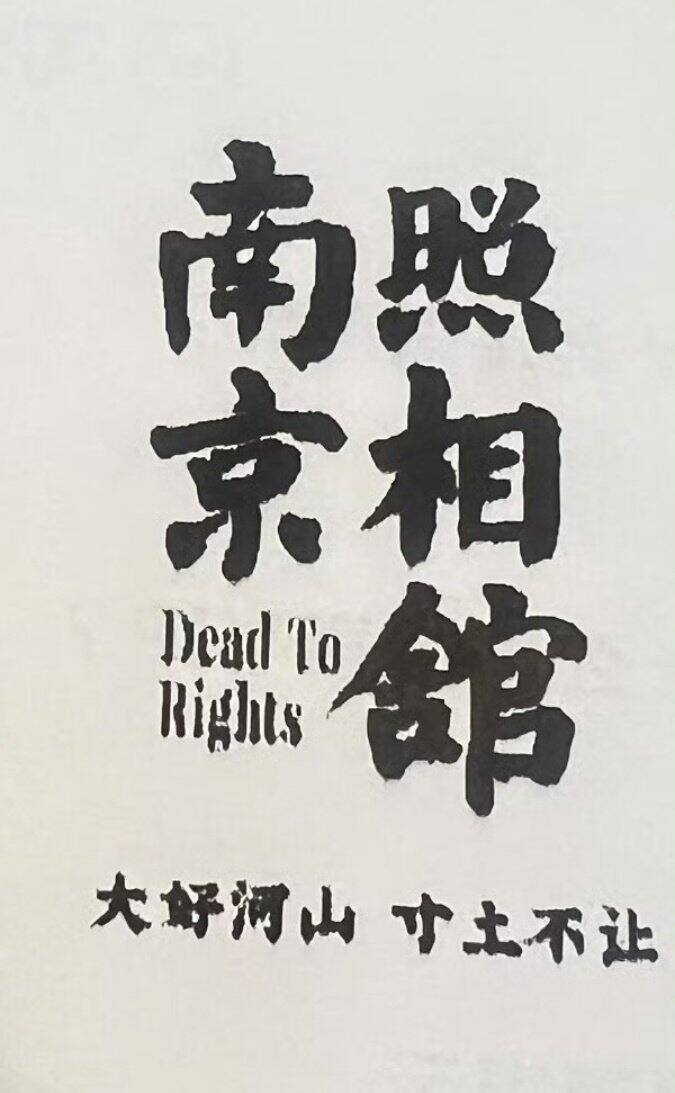 南京
照相館
Dead To
Rights
大好河山 寸土不让